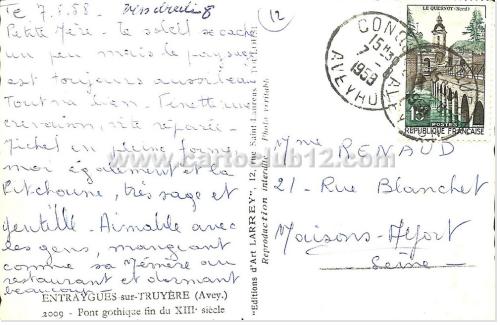 Le 7.8.58. Vendredi 8
Petite Mère. le soleil se cache
un peu mais le paysage
est toujours aussi beau
Tout va bien. Tenette une
crevaison, vite réparée.
Michel en pleine forme
moi également et la
Pitchoune, très sage et
gentille. Aimable avec
des gens, mangeant
comme sa Mémère au
restaurant et dormant
beaucoup
ENTRAYGUES-sur-TRUYÈRE (Avey.)
2009 - Pont gothique fin du XIIIe siècle
12
"Editions d'Art LARREY", 12, rue Saint-Laurent, TOULOUSE
Reproduction interdite
Photo véritable
CONQUES
15H
7 -
1958
AVEYRON
LE QUESNOY (Nord)
15F
POSTES
REPUBLIQUE FRANÇAISE
Mme RENAUD
21 - Rue Blanchet
Maisons-Alfort
Seine
www.cartoclub12.com